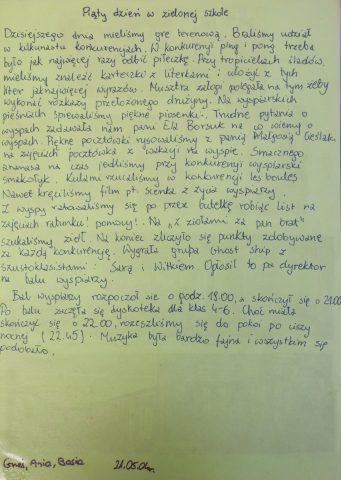 Piąty dzień w zielonej szkole
Dzisiejszego dnia mieliśmy grę terenową. Braliśmy udział
w kilkunastu konkurencjach. W konkurencji ping i pong trzeba
było jak najwięcej razy odbić piłeczkę. Przy tropicielach śladów
mieliśmy znaleźć karteczki z literkami i ułożyć z tych
liter jak najwięcej wyrazów. Musztra załogi polegała na tym żeby
wykonać rozkazy przełożonego drużyny. Na wyspiarskich
pieśniach śpiewaliśmy piękne piosenki. Trudne pytania o
wyspach zadawała nam pani Ela Borsuk na w wiemy o
wyspach. Piękne pocztówki rysowaliśmy z panią Małgosią Cieślak,
na zajęciach pocztówka z wakacji na wyspie. Smacznego
ananasa na czas jedliśmy przy konkurencji wyspiarski
smakołyk. Kulami rzucaliśmy w konkurencji les boules
Nawet kręciliśmy film pt. scenka z życia wyspiarzy.
Z wyspy ratowaliśmy się po przez butelkę robiąc list na
zajęciach ratunku! pomocy!. Na „z ziołami za pan brat"
szukaliśmy ziół. Na koniec zliczyło się punkty zdobywane
za każdą konkurencję. Wygrała grupa Ghost ship z
szustoklasistami: Sarą i Witkiem. Ogłosił to pa dyrektor
na balu wyspiarzy.
Bal wyspiarzy rozpoczoł sie o godz. 18.00, a skończył się o 21.00
Po balu zaczęła się dyskoteka dla klas 4-6. Choć miała
skończyć się o 22.00, rozeszliśmy się do pokoi po ciszy
nocnej (22.45). Muzyka była bardzo fajna i wszystkim się
podobało.
Ania, Basia 21.05